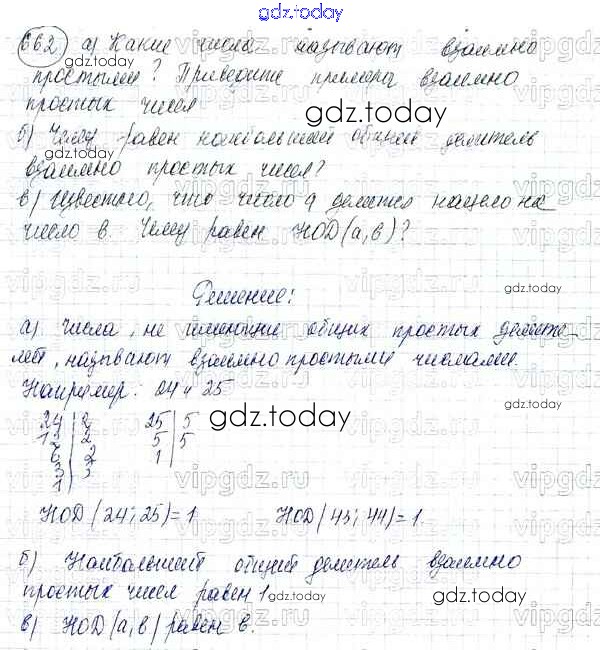 gdz.today
662) а) Какие числа называют взаимно
gdz.today
простыми? Приведите примеры взаимно
простых чисел
gdz.today
б) Чему равен наибольший общий делитель
gdz.today
взаимно простых чисел?
в) Известно, что число а делится нацело на
число в. Чему равен НОД(а,в)?
gdz.today
Решение:
gdz.today
а) Числа, не имеющие общих простых делите-
лей, называют взаимно простыми числами.
Например: 24 и 25
24 | 2 25 | 5
12 | 2 5 | 5
6 | 2 1 |
3 | 3
1 |
gdz.today
gdz.today
НОД(24; 25)=1 НОД(43; 44)=1.
gdz.today
б) Наибольший общий делитель взаимно
простых чисел равен 1.
gdz.today
в) НОД(а,в) равен в.
gdz.today
vipgdz.ru